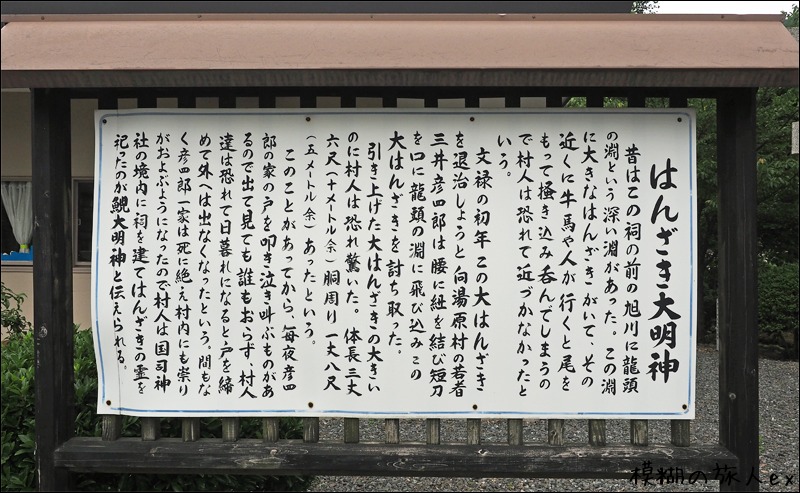 はんざき大明神
昔はこの祠の前の旭川に龍頭
の淵という深い淵があった。この淵
に大きなはんざきがいて、その
近くに牛馬や人が行くと尾を
もって掻き込み呑んでしまうの
で村人は恐れて近づかなかったと
いう。
文禄の初年この大はんざき
を退治しょうと向湯原村の若者
三井彦四郎は腰に紐を結び短刀
を口に龍頭の淵に飛び込みこの
大はんざきを討ち取った。
引き上げた大はんざきの大きい
のに村人は恐れ驚いた。体長三丈
六尺(十メートル余)胴周り一丈八尺
(五メートル余)あったという。
このことがあってから、毎夜彦四
郎の家の戸を叩き泣き叫ぶものがあ
るので出て見ても誰もおらず、村人
達は恐れて日暮れになると戸を締
めて外へは出なくなったという。間もな
く彦四郎一家は死に絶え村内にも祟り
がおよぶようになったので村人は国司神
社の境内に祠を建てはんざきの霊を
祀ったのが鯢大明神と伝えられる。
模糊の旅人ex